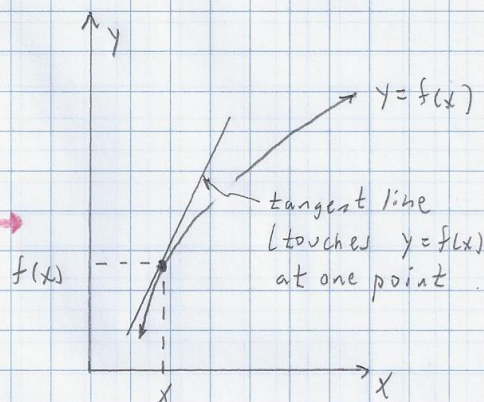 y
y = f(x)
tangent line
(touches y = f(x)
at one point
f(x)
x
x